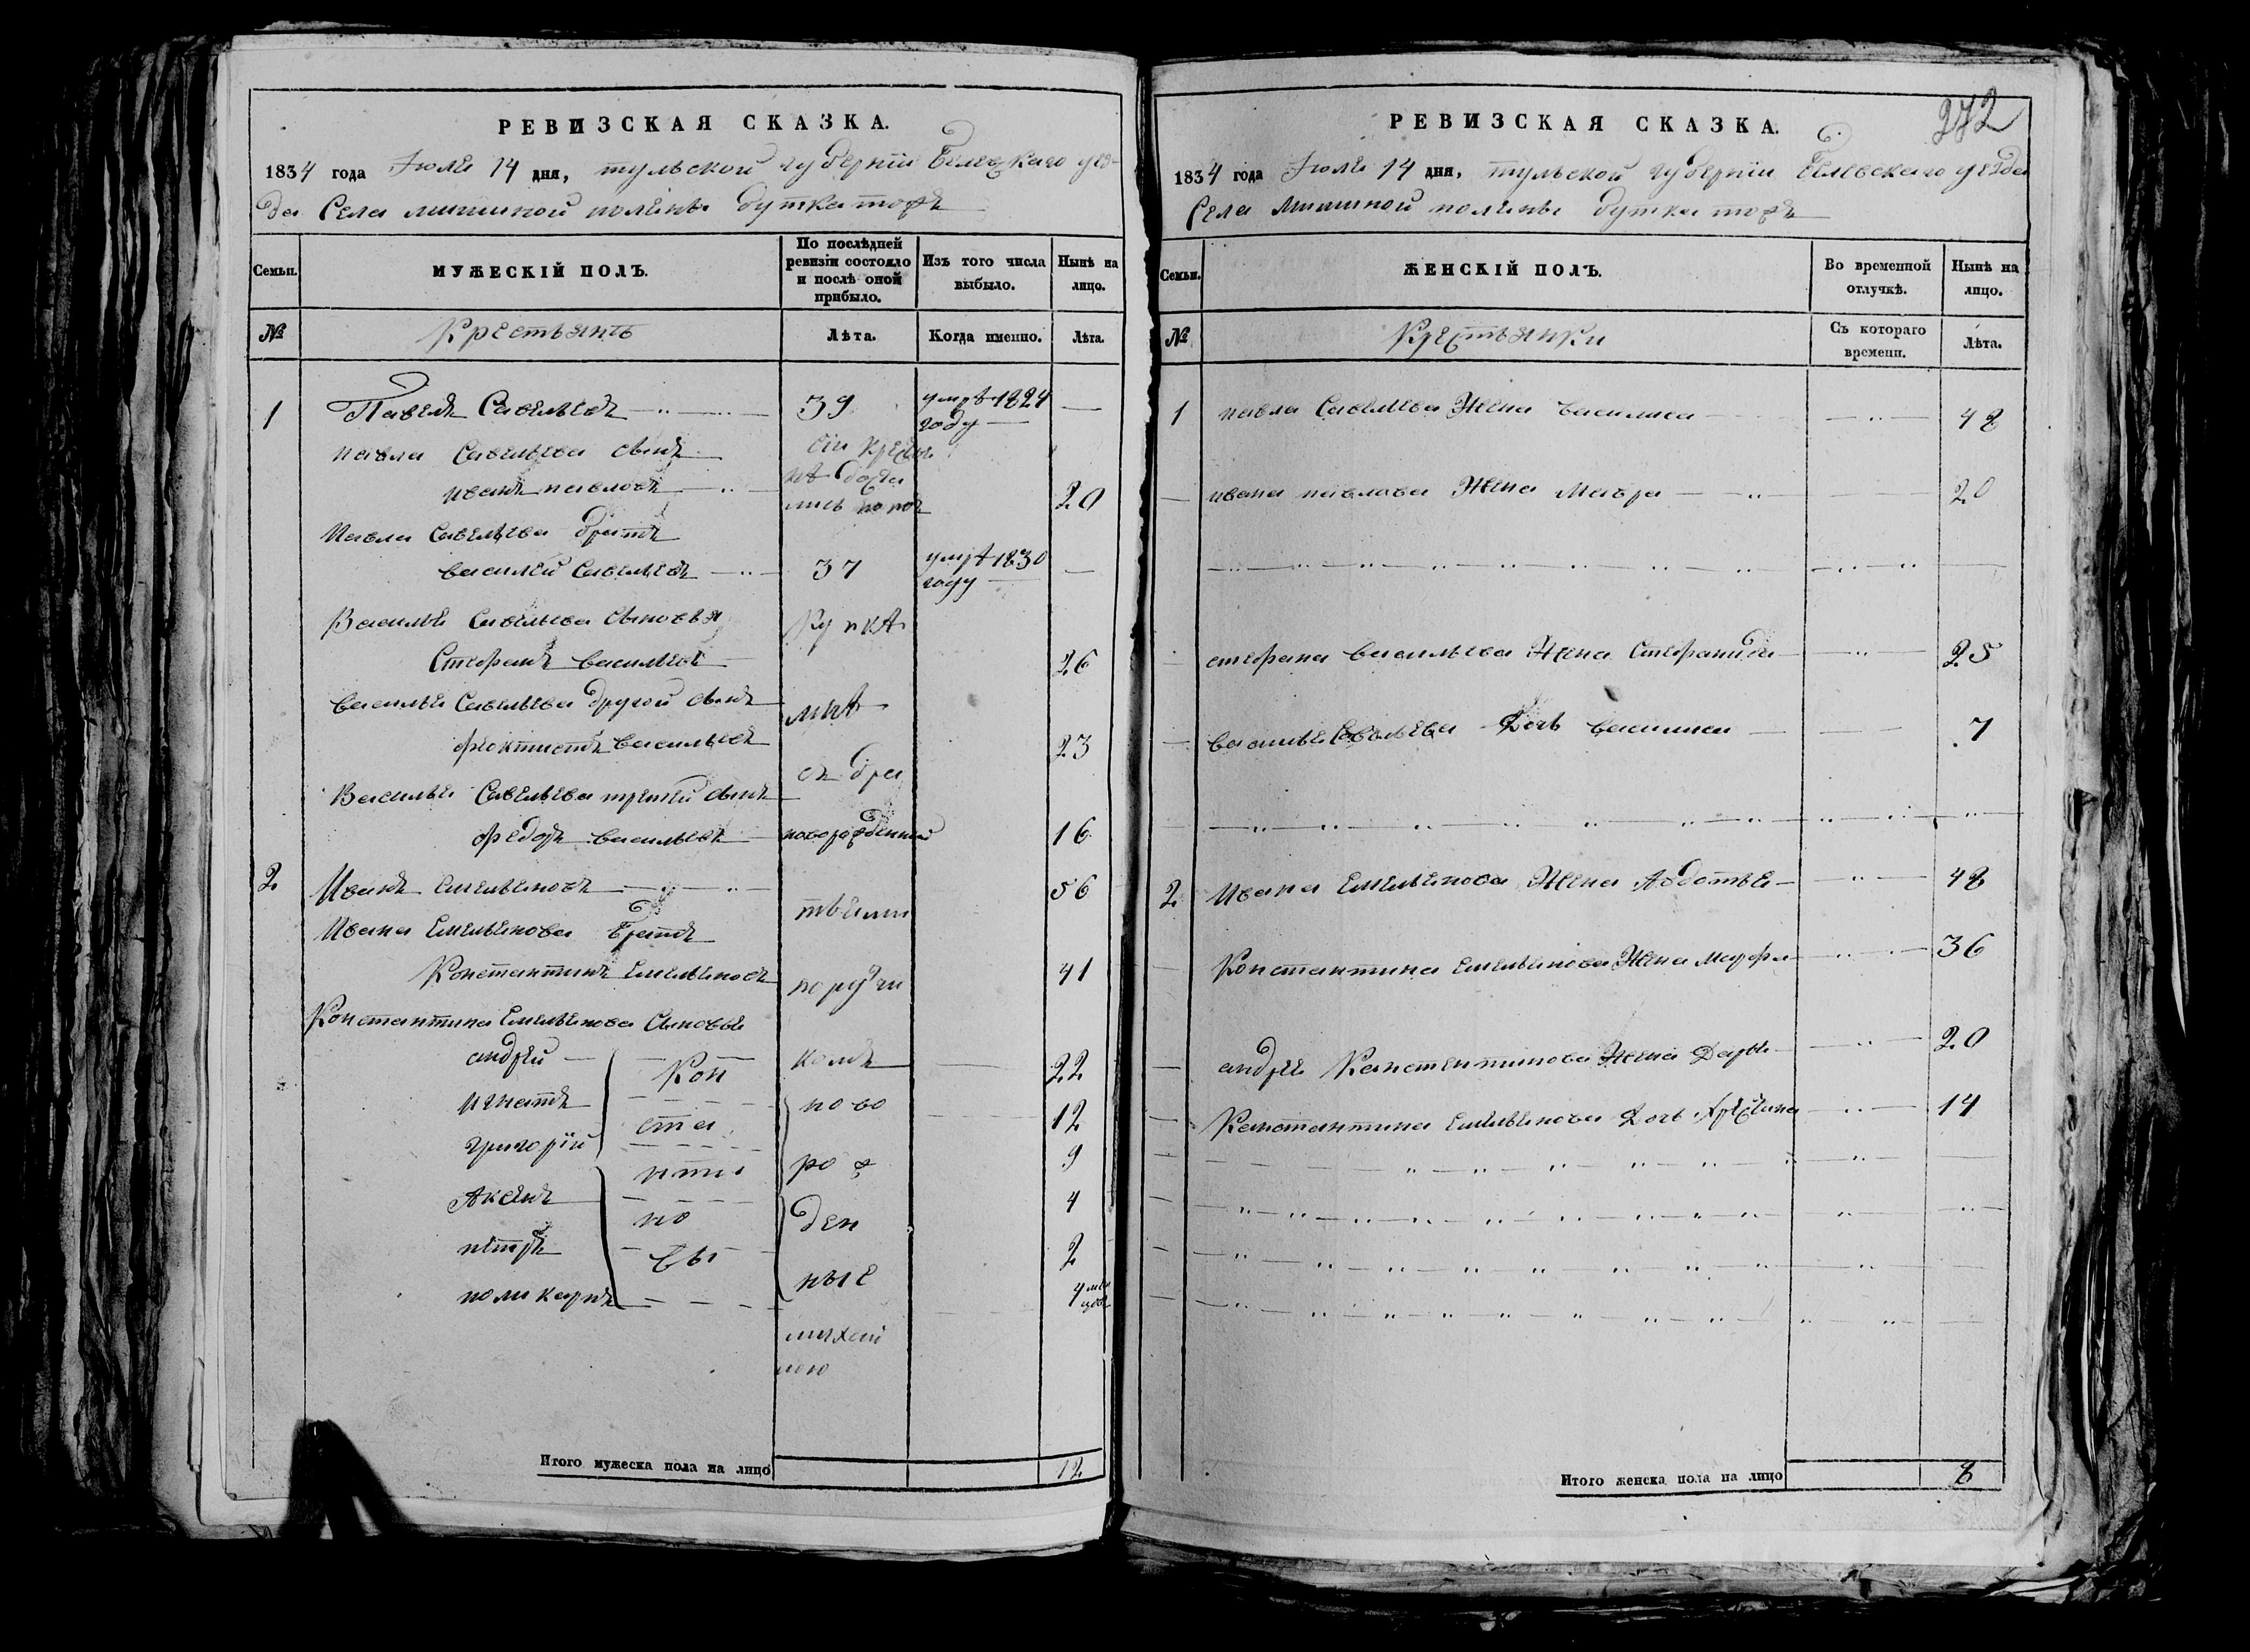 РЕВИЗСКАЯ СКАЗКА.
1834 года Июля 14 дня, тульской губернiи Белевскаго уез-
да Села мишиной поляны тожъ
Семьи.
МУЖЕСКІЙ ПОЛЪ.
По послѣдней ревизіи состояло и послѣ оной прибыло.
Изъ того числа выбыло.
Нынѣ на лицо.
№
Крестьянъ
Лѣта.
Когда именно.
Лѣта.
1 Павелъ Савельевъ 39 умрѣ 1824 году
павла Савельева сынъ
иванъ павловъ 20
Павла Савельева братъ
василей Савельевъ 37 умрѣ 1830 году
Василья Савельева сыновья
Стефанъ васильевъ 26
василья Савельева другой сынъ
феоктистъ васильевъ 23
Василья Савельева третей сынъ
федоръ васильевъ новорожденный 16
2 Иванъ Емельяновъ 56
Ивана Емельянова Братъ
Константинъ Емельяновъ 41
Константина Емельянова Сыновья
андрей 22
игнатъ 12
григорій 9
Аксенъ 4
петръ 2
поликарпъ 4 мѣсяцовъ
Кон
ста
нти
но
вы
сіи крестьяне достались по
купкѣ
мнѣ
съ бра
тьями
поручи
комъ
ново
рож
ден
ные
михай
лою
Итого мужеска пола на лицо 12
272
РЕВИЗСКАЯ СКАЗКА.
1834 года Июля 14 дня, тульской губернiи белевскаго уезда
Села Мишиной поляны тожъ
Семьи.
ЖЕНСКІЙ ПОЛЪ.
Во временной отлучкѣ.
Нынѣ на лицо.
№
Крестьянки
Съ котораго времени.
Лѣта.
1 павла Савельева Жена василиса 48
ивана павлова Жена Мавра 20
стефана васильева Жена Стефанида 25
василья Савельева Дочь василиса 7
2 Ивана Емельянова Жена Авдотья 48
Константина Емельянова Жена марфа 36
андрея Канстентинова Жена Дарья 20
Канстантина Емельянова Дочь Хрестина 14
Итого женска пола на лицо 8